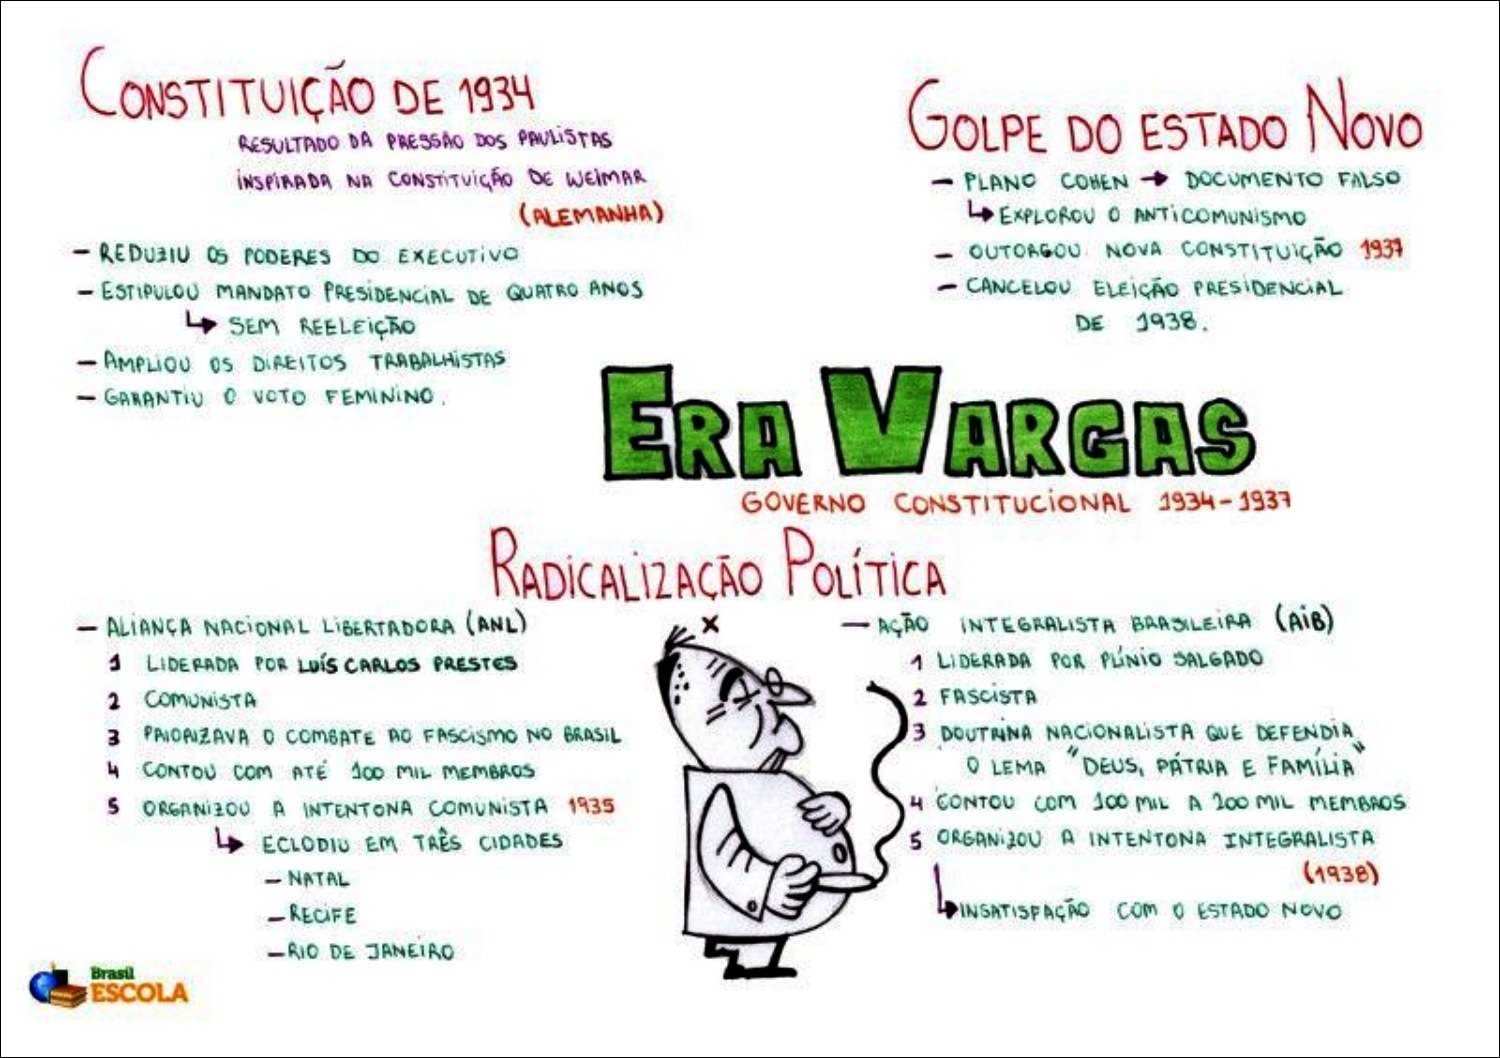 CONSTITUIÇÃO DE 1934
RESULTADO DA PRESSÃO DOS PAULISTAS
INSPIRADA NA CONSTITUIÇÃO DE WEIMAR
(ALEMANHA)
- REDUZIU OS PODERES DO EXECUTIVO
- ESTIPULOU MANDATO PRESIDENCIAL DE QUATRO ANOS
↳ SEM REELEIÇÃO
- AMPLIOU OS DIREITOS TRABALHISTAS
- GARANTIU O VOTO FEMININO.
GOLPE DO ESTADO NOVO
- PLANO COHEN → DOCUMENTO FALSO
↳ EXPLOROU O ANTICOMUNISMO
- OUTORGOU NOVA CONSTITUIÇÃO 1937
- CANCELOU ELEIÇÃO PRESIDENCIAL
DE 1938.
ERA VARGAS
GOVERNO CONSTITUCIONAL 1934-1937
RADICALIZAÇÃO POLÍTICA
X
- ALIANÇA NACIONAL LIBERTADORA (ANL)
1 LIDERADA POR LUÍS CARLOS PRESTES
2 COMUNISTA
3 PRIORIZAVA O COMBATE AO FASCISMO NO BRASIL
4 CONTOU COM ATÉ 100 MIL MEMBROS
5 ORGANIZOU A INTENTONA COMUNISTA 1935
↳ ECLODIU EM TRÊS CIDADES
- NATAL
- RECIFE
- RIO DE JANEIRO
- AÇÃO INTEGRALISTA BRASILEIRA (AIB)
1 LIDERADA POR PLÍNIO SALGADO
2 FASCISTA
3 DOUTRINA NACIONALISTA QUE DEFENDIA
O LEMA "DEUS, PÁTRIA E FAMÍLIA"
4 CONTOU COM 100 MIL A 200 MIL MEMBROS
5 ORGANIZOU A INTENTONA INTEGRALISTA
(1938)
↳ INSATISFAÇÃO COM O ESTADO NOVO
Brasil
ESCOLA